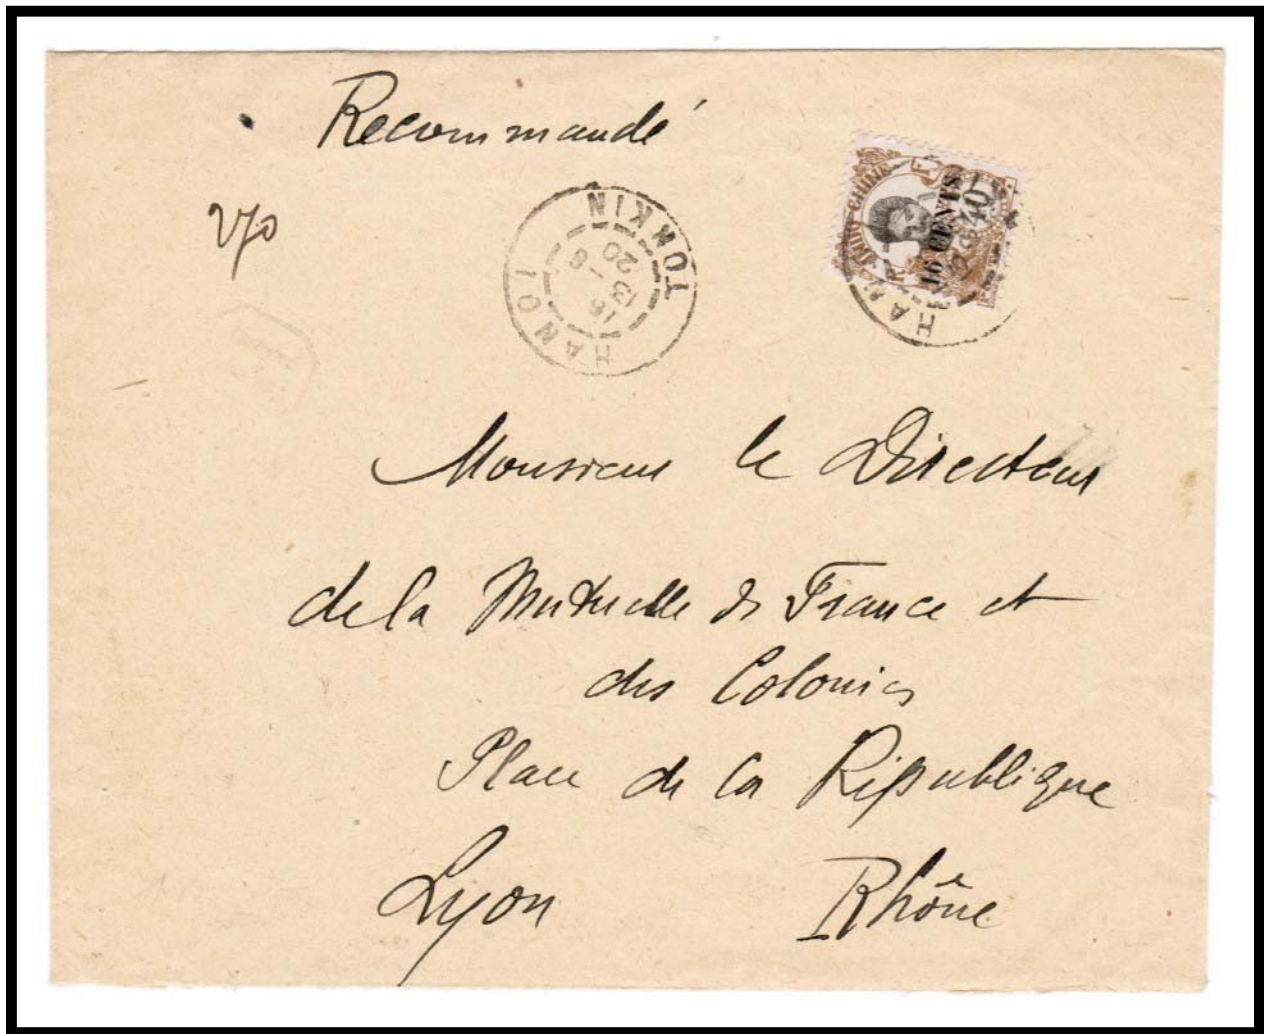 Recommandé
270
HANOI
TONKIN
15
13 - 8
20
INDO-CHINE
16 CENTS
40
HAN
Monsieur le Directeur
de la Mutuelle de France et
des Colonies
Place de la République
Lyon Rhône